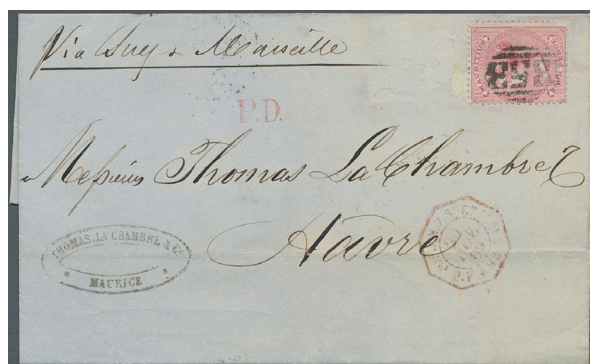 Via Suez & Marseille
P.D.
B53
Messieurs Thomas LaChambre &
Havre
THOMAS, LA CHAMBRE & Co
MAURICE